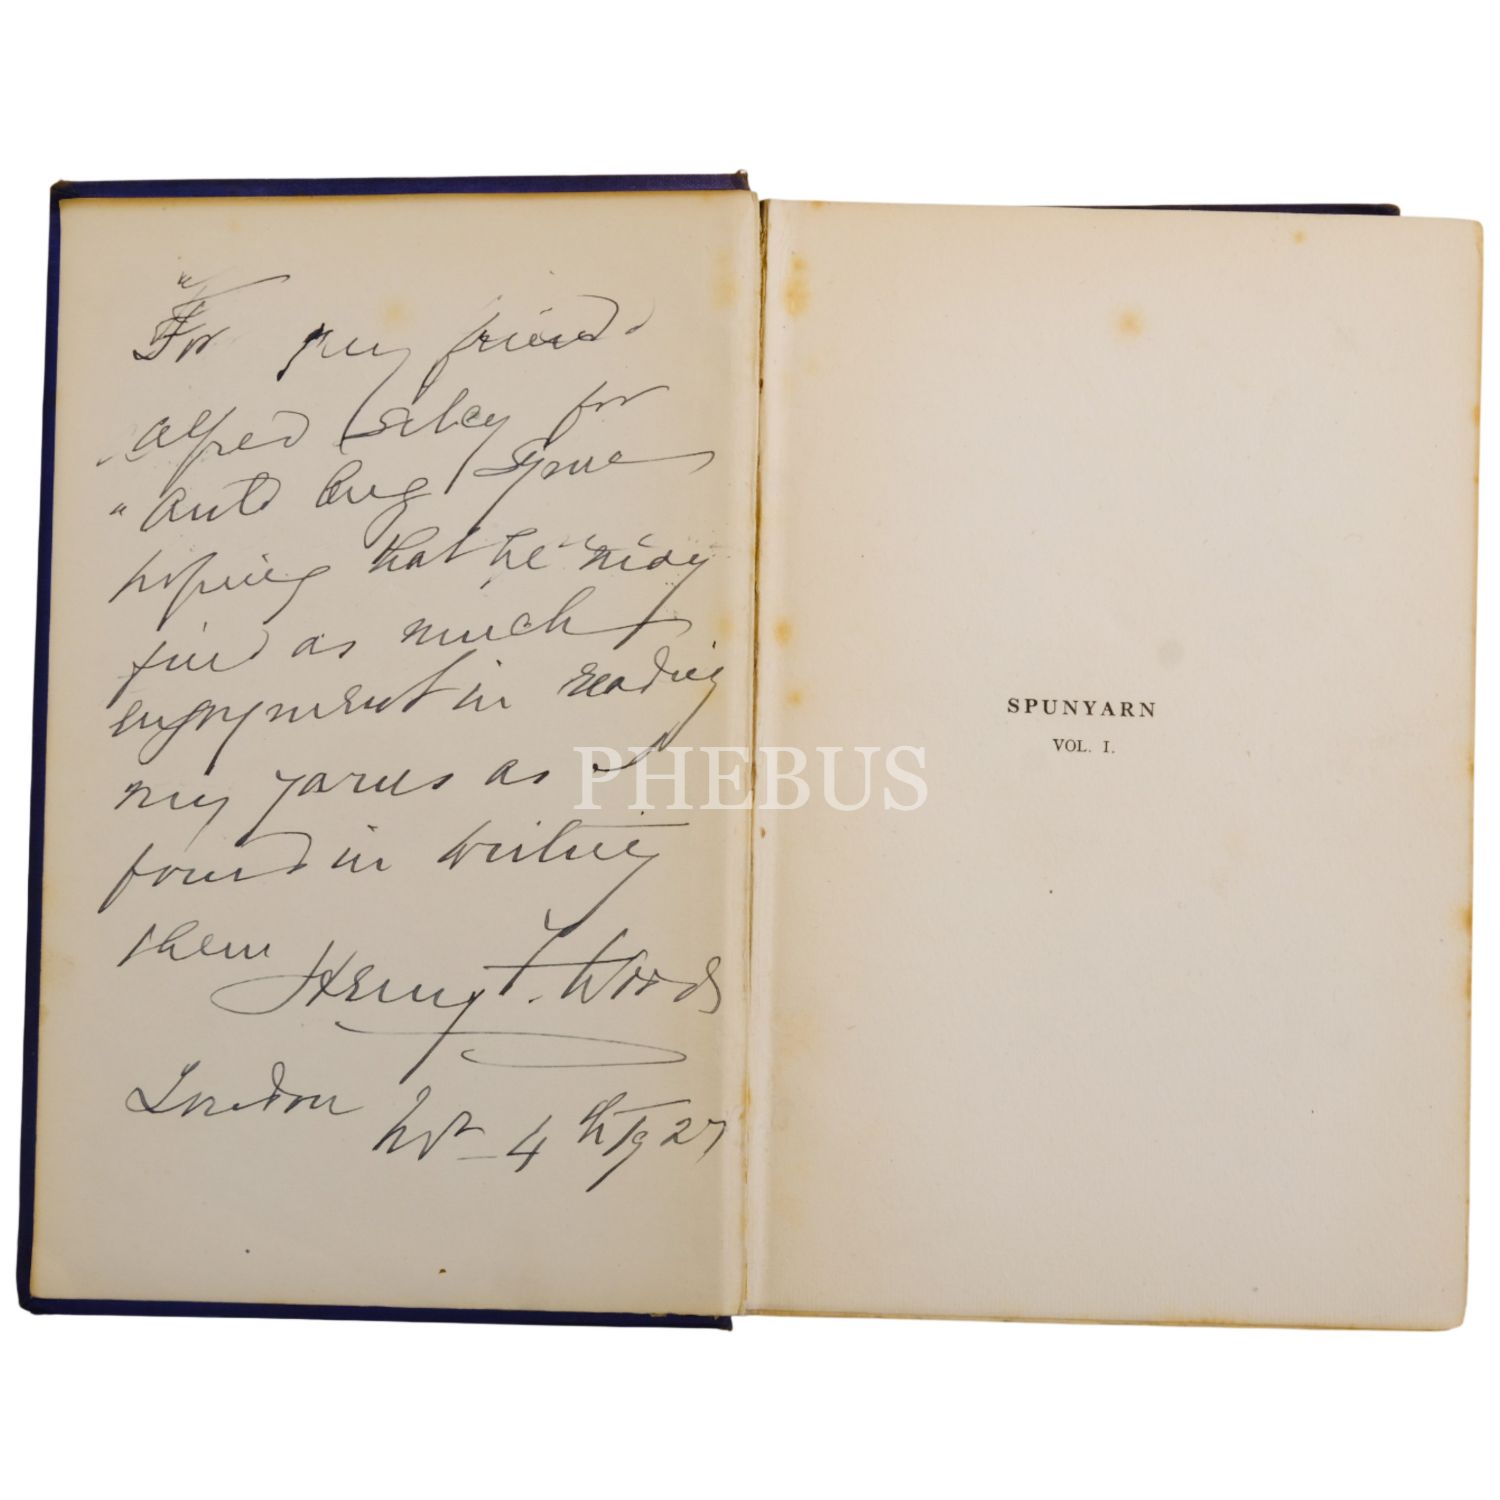 "For my friend
Alfred Silley for
"Auld Lang Syne
hoping that he may
find as much
enjoyment in reading
my yarns as I
found in writing
them
Henry F. Woods
London
Nov - 4th 1927
SPUNYARN
VOL. I.
PHEBUS